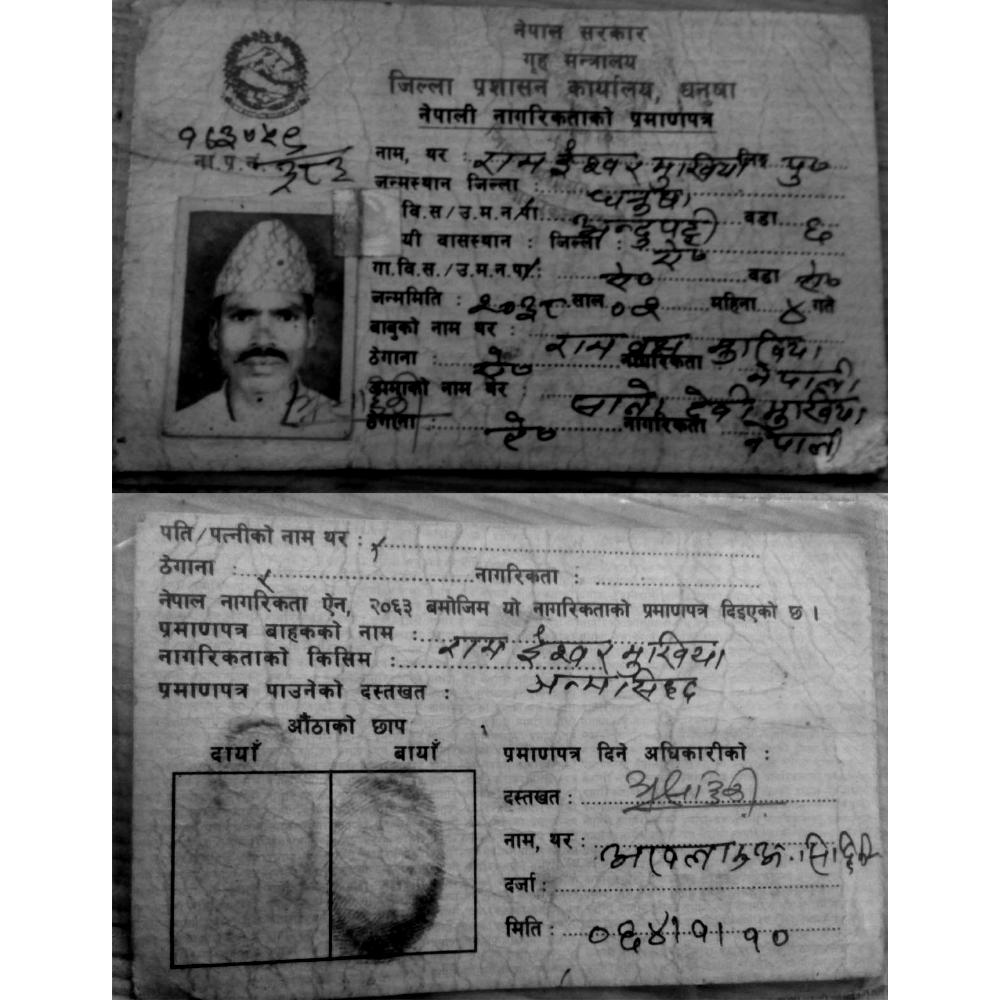 नेपाल सरकार
गृह मन्त्रालय
जिल्ला प्रशासन कार्यालय, धनुषा
नेपाली नागरिकताको प्रमाणपत्र
ना.प्र.नं.
नाम, थर : राम ईश्वर मुखिया लिङ्ग पु०
जन्मस्थान जिल्ला : धनुषा
वि.स/उ.म.न/पा वडा ६
यी वासस्थान : जिल्ला : ऐ०
गा.वि.स./उ.म.न.पा: ऐ० वडा ऐ०
जन्ममिति : साल महिना ४ गते
बाबुको नाम थर : राम मुखिया
ठेगाना : ऐ० नागरिकता नेपाली
आमाको नाम थर : देवी मुखिया
ठेगाना : ऐ० नागरिकता नेपाली
पति/पत्नीको नाम थर : x
ठेगाना : x नागरिकता :
नेपाल नागरिकता ऐन, २०६३ बमोजिम यो नागरिकताको प्रमाणपत्र दिइएको छ ।
प्रमाणपत्र बाहकको नाम : राम ईश्वर मुखिया
नागरिकताको किसिम :
प्रमाणपत्र पाउनेको दस्तखत :
औंठाको छाप
दायाँ बायाँ
प्रमाणपत्र दिने अधिकारीको :
दस्तखत :
नाम, थर :
दर्जा :
मिति : ०६४।१।१०